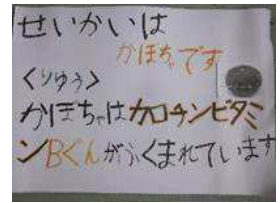 せいかいは
かぼちゃです
<りゆう>
かぼちゃはカロチンビタミ
ンBぐんがふくまれています